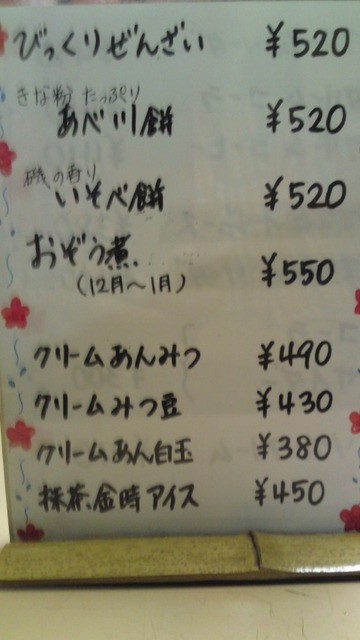 びっくりぜんざい ¥520
きな粉 たっぷり
あべ川餅 ¥520
磯の香り
いそべ餅 ¥520
おぞう煮 ¥550
(12月〜1月)
クリームあんみつ ¥490
クリームみつ豆 ¥430
クリームあん白玉 ¥380
抹茶金時アイス ¥450